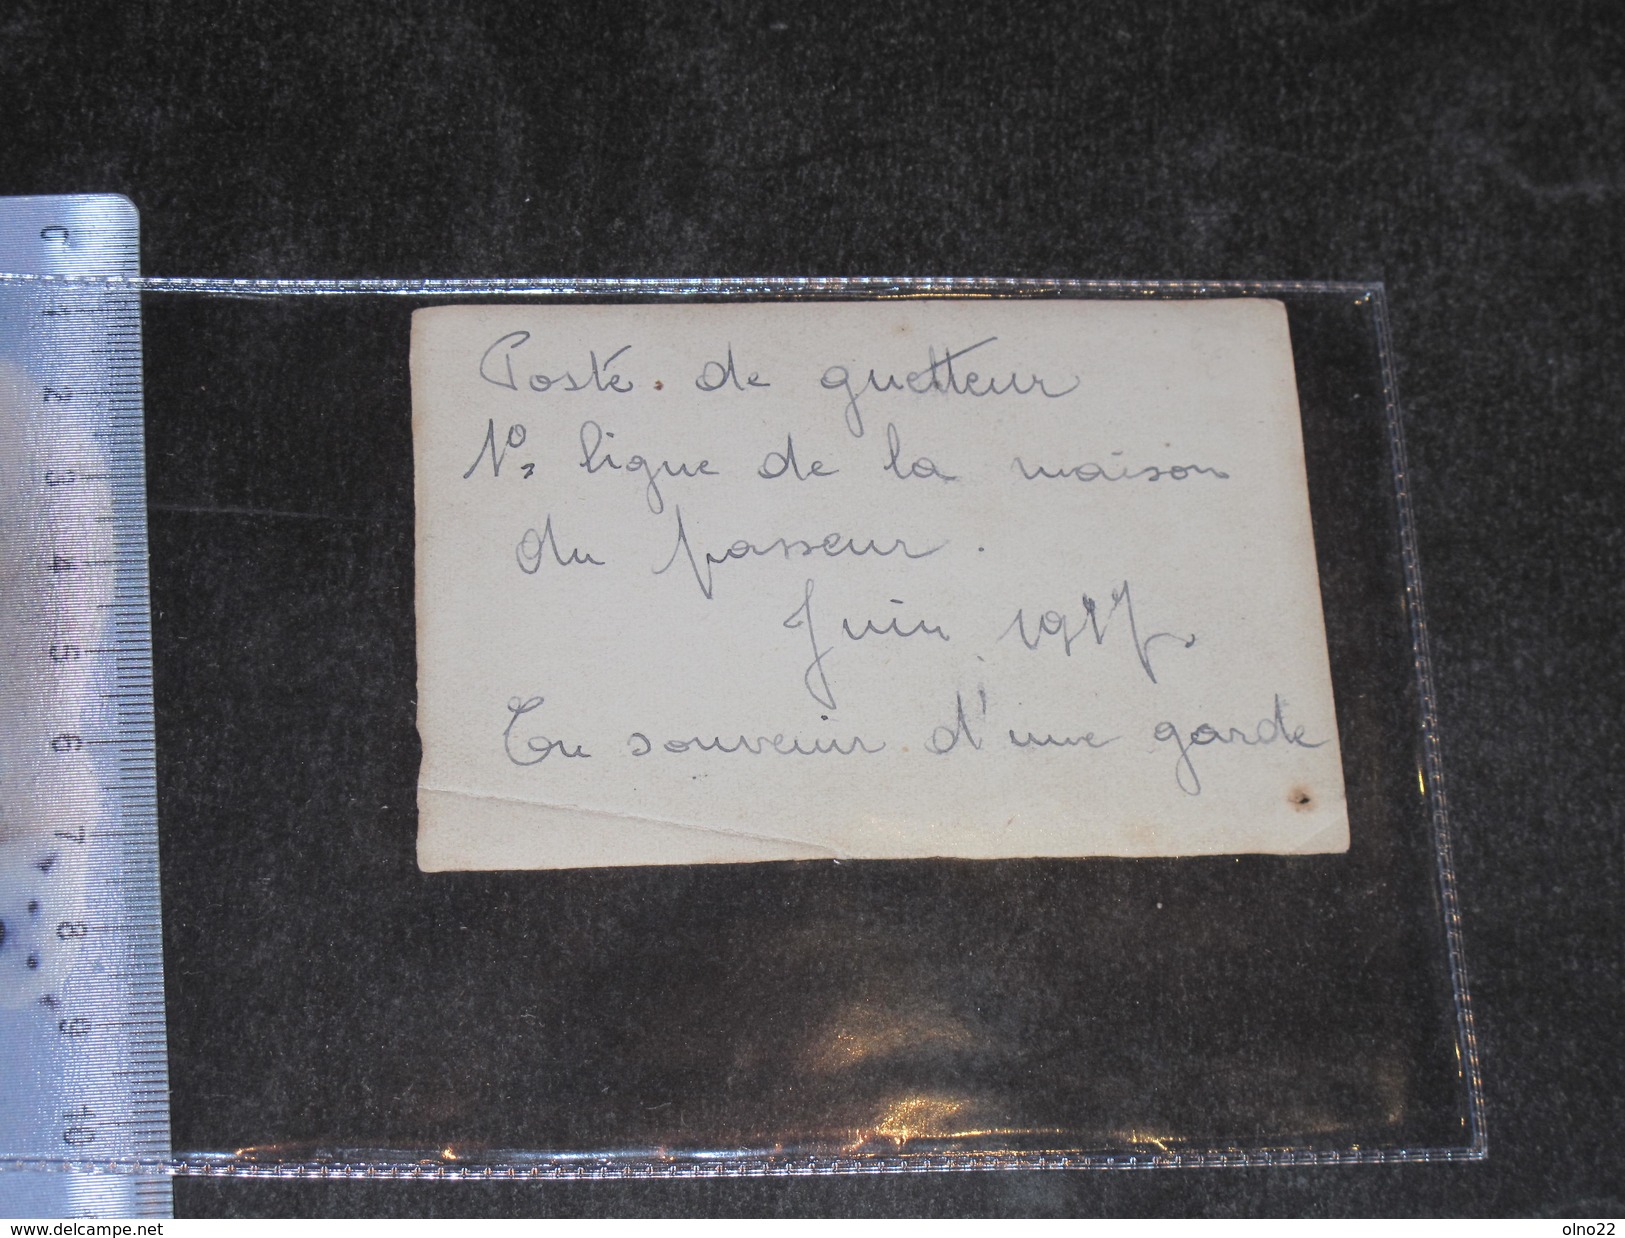 Poste de guetteur
N°2 ligne de la maison
du passeur.
Juin 1917.
En souvenir d'une garde
0
1
2
3
4
5
6
7
8
9
10
www.delcampe.net
olno22